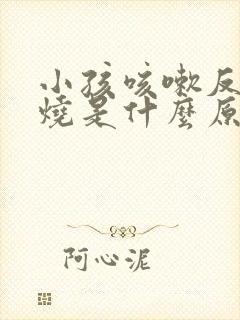 小孩咳嗽反
燒是什麼原
阿心泥